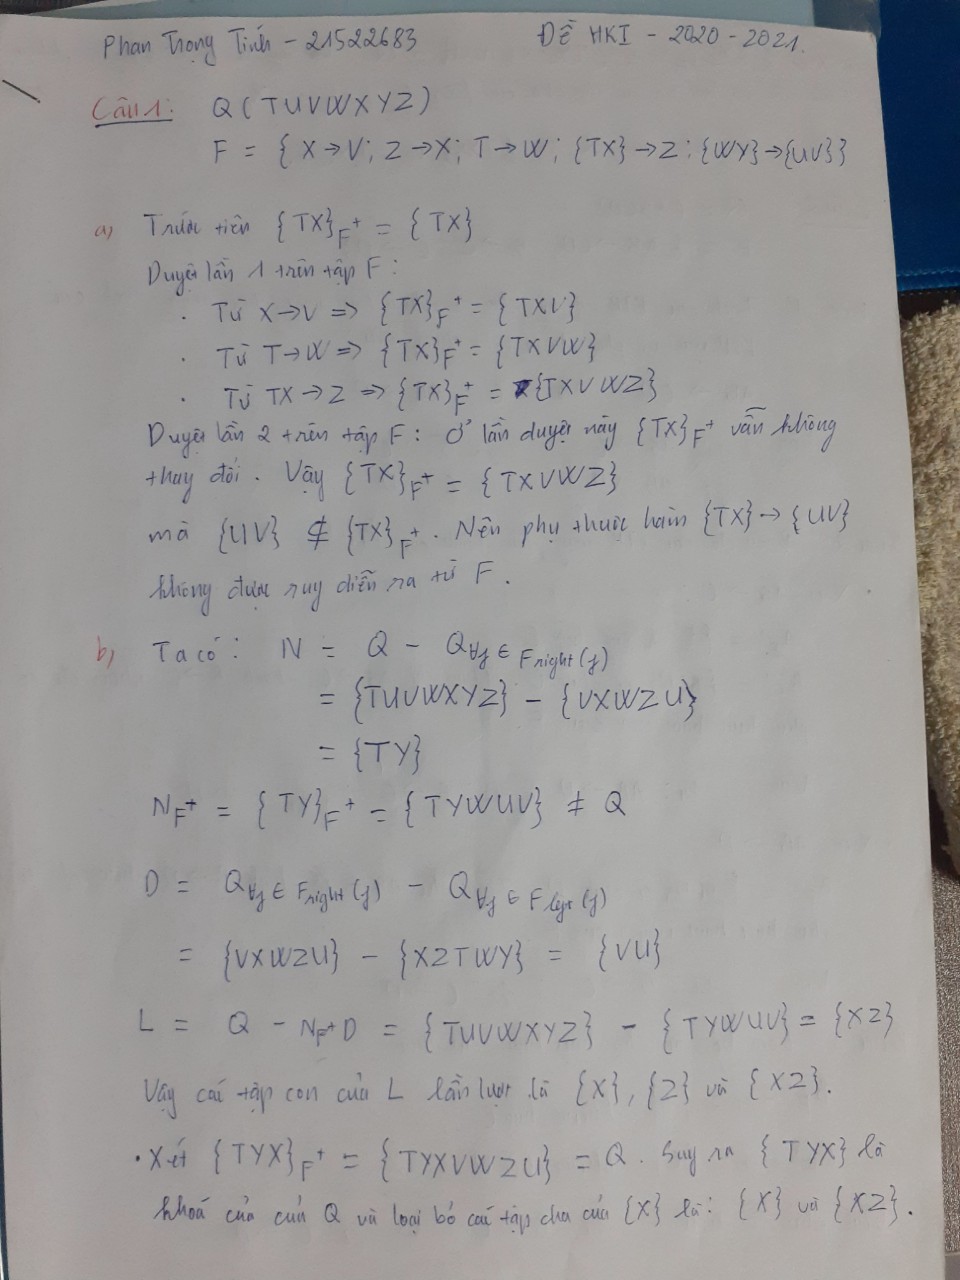 Phan Trọng Tính - 21522683 ĐỀ HKI - 2020 - 2021.
Câu 1: Q(TUVWXYZ)
F = { X → V; Z → X; T → W; {TX} → Z; {WY} → {UV}}
a) Trước tiên {TX}F+ = {TX}
Duyệt lần 1 trên tập F:
. Từ X→V => {TX}F+ = {TXV}
. Từ T→W => {TX}F+ = {TXVW}
. Từ TX→Z => {TX}F+ = {TXVWZ}
Duyệt lần 2 trên tập F: Ở lần duyệt này {TX}F+ vẫn không
thay đổi. Vậy {TX}F+ = {TXVWZ}
mà {UV} ⊄ {TX}F+. Nên phụ thuộc hàm {TX} → {UV}
không được suy diễn ra từ F.
b) Ta có: N = Q - Q∀f ∈ Fright(f)
= {TUVWXYZ} - {VXWZU}
= {TY}
NF+ = {TY}F+ = {TYWUV} ≠ Q
D = Q∀f ∈ Fright(f) - Q∀f ∈ Fleft(f)
= {VXWZU} - {XZTWY} = {VU}
L = Q - NF+D = {TUVWXYZ} - {TYWUV} = {XZ}
Vậy các tập con của L lần lượt là {X}, {Z} và {XZ}.
• Xét {TYX}F+ = {TYXVWZU} = Q. Suy ra {TYX} là
khoá của của Q và loại bỏ các tập cha của {X} là: {X} và {XZ}.